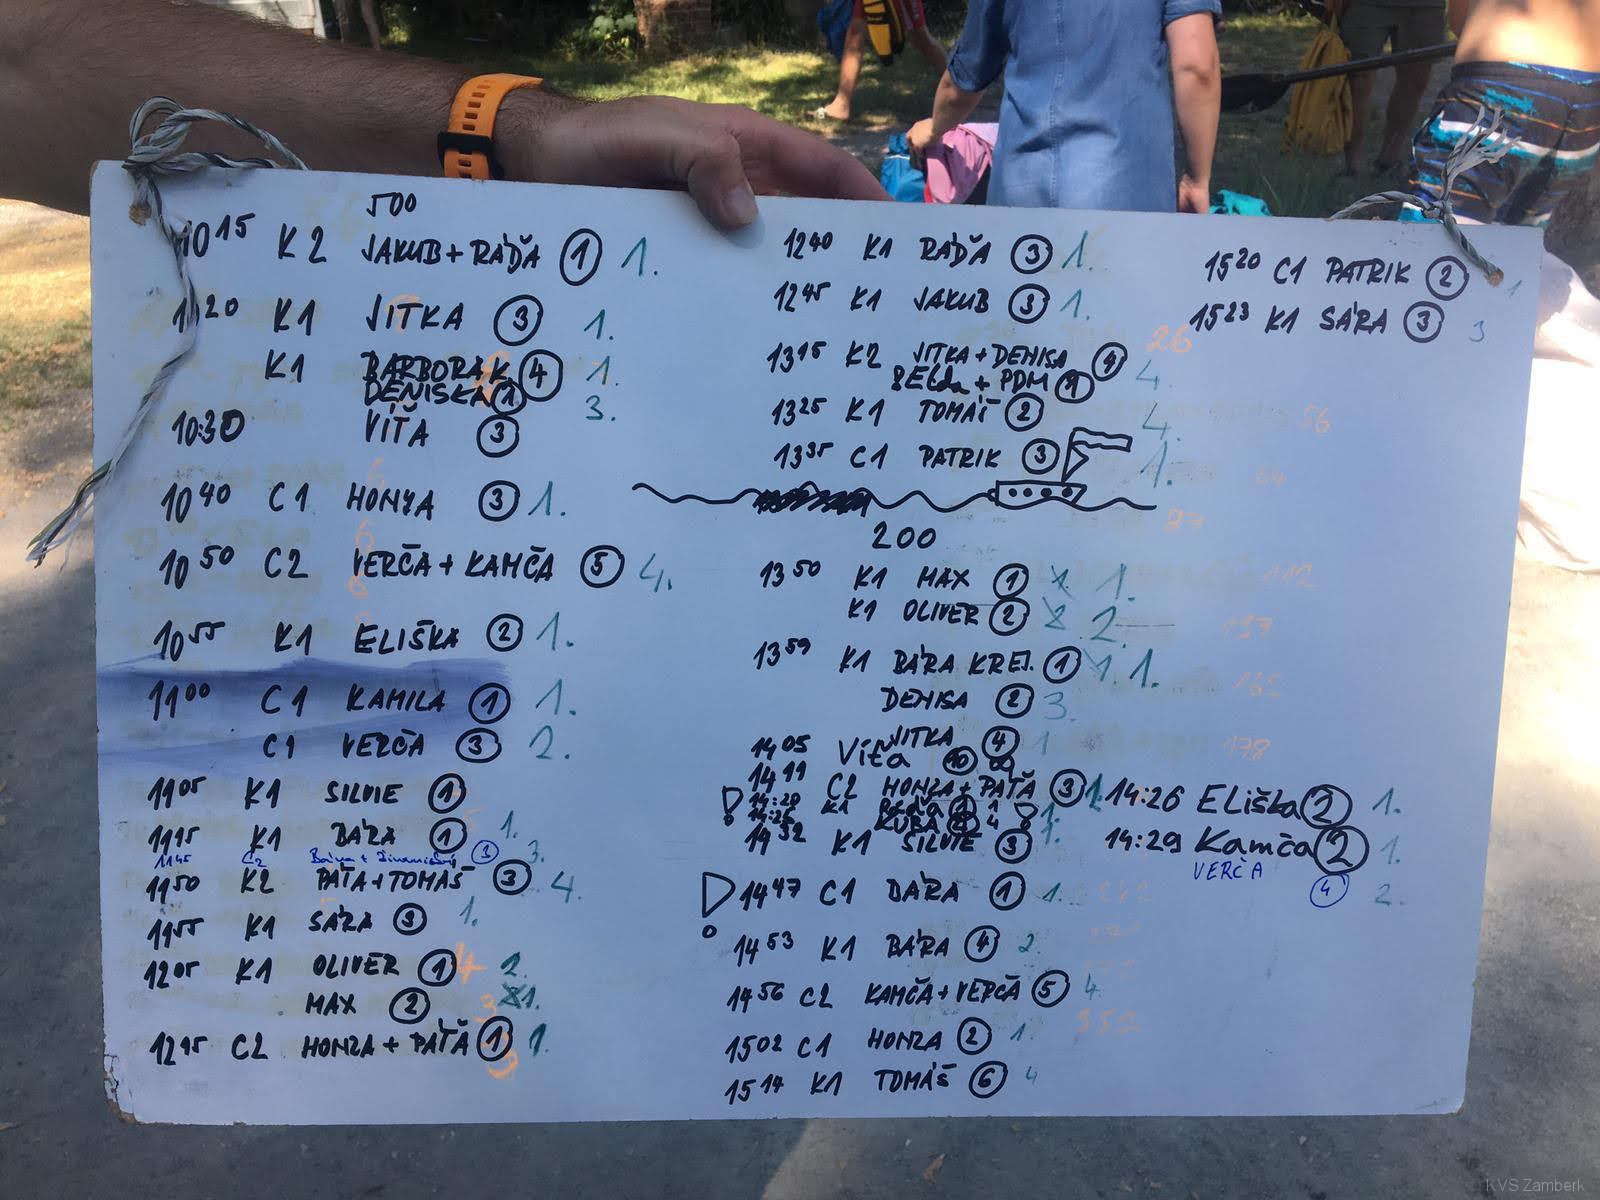 500
10 15 K2 JAKUB + RÁĎA 1 1.
1120 K1 JITKA 3 1.
K1 BARBORA K 4 1.
DENISKA 1 3.
10:30 VÍŤA 3
10 40 C1 HONZA 3 1.
10 50 C2 VERČA + KAMČA 5 4.
10 55 K1 ELIŠKA 2 1.
11 00 C1 KAMILA 1 1.
C1 VERČA 3 2.
11 05 K1 SILVIE 1
11 15 K1 BÁRA 1 1.
11 45 C2 3 3.
11 50 K2 PÁŤA + TOMÁŠ 3 4.
11 55 K1 SÁRA 3 1.
12 05 K1 OLIVER 1 2.
MAX 2 1.
12 15 C2 HONZA + PÁŤA 1 1.
12 40 K1 RÁĎA 3 1.
12 45 K1 JAKUB 3 1.
13 15 K2 JITKA + DENISA 4 4.
+ PDM
13 25 K1 TOMÁŠ 2 4.
13 35 C1 PATRIK 3 1.
200
13 50 K1 MAX 1 1.
K1 OLIVER 2 2.
13 59 K1 BÁRA KREJ. 1 1.
DENISA 2 3.
14 05 JITKA 4 1
Víťa 10
14 11 C2 HONZA + PÁŤA 3 1.
14:20 K1
K1 KUBA 4
14 32 K1 SILVIE 3 1.
14 47 C1 BÁRA 1 1.
14 53 K1 BÁRA 4 2.
14 56 C2 KAMČA + VERČA 5 4
15 02 C1 HONZA 2 1.
15 14 K1 TOMÁŠ 6 4
15 20 C1 PATRIK 2 1
15 23 K1 SÁRA 3 3
14:26 ELiška 2 1.
14:29 Kamča 2 1.
VERČA 4 2.
KVS Zamberk